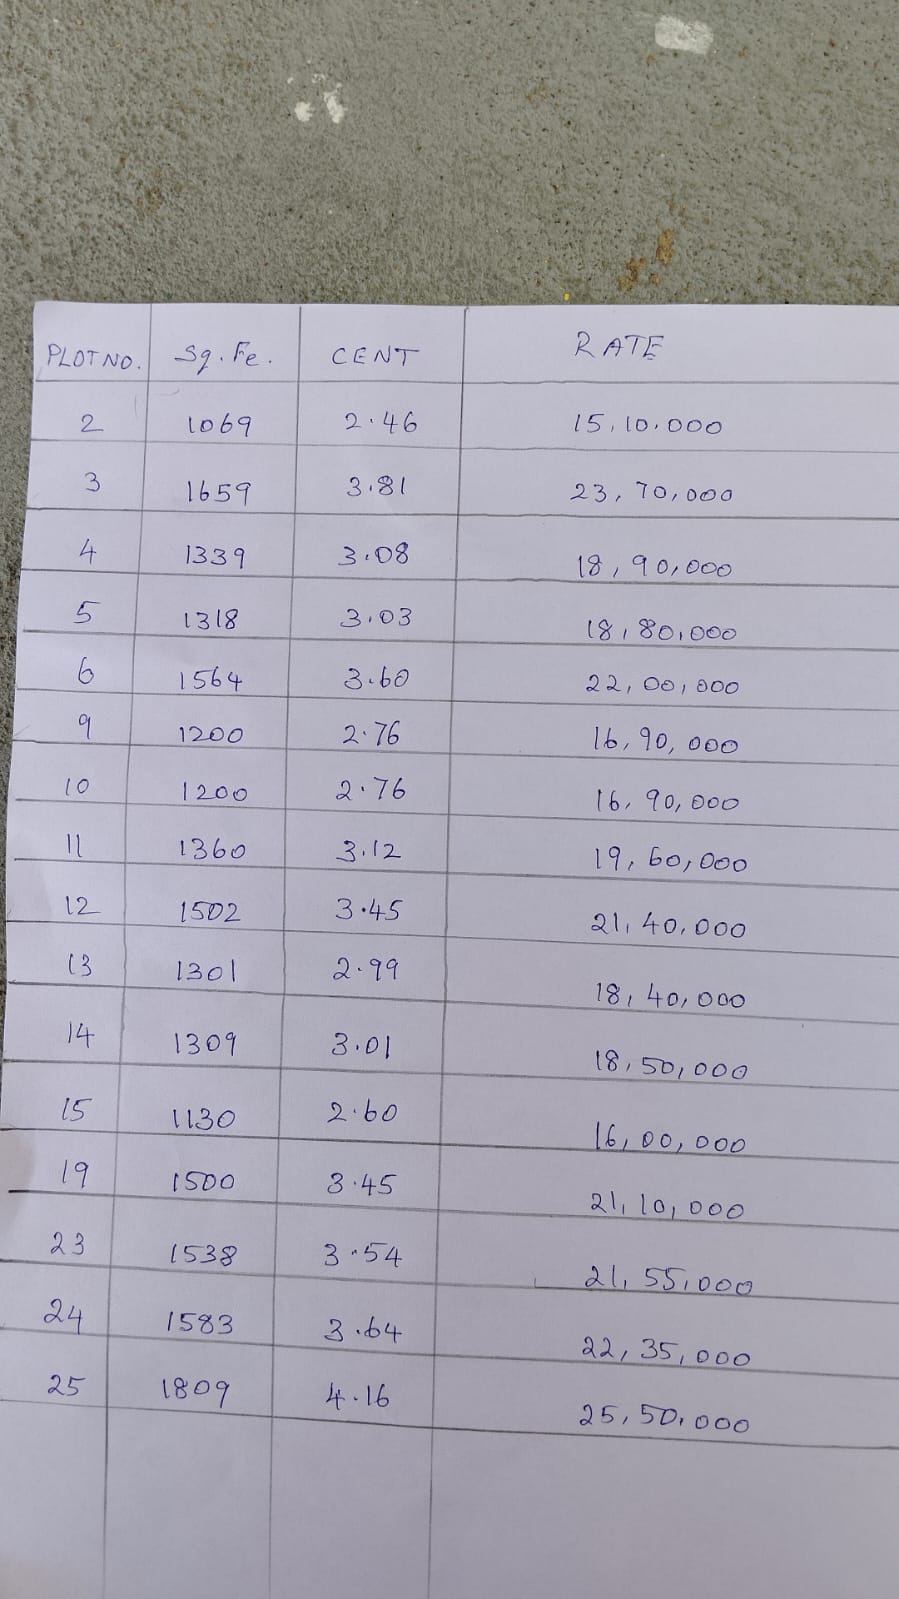 PLOT NO. Sq. Fe. CENT RATE
2 1069 2.46 15,10,000
3 1659 3.81 23,70,000
4 1339 3.08 18,90,000
5 1318 3.03 18,80,000
6 1564 3.60 22,00,000
9 1200 2.76 16,90,000
10 1200 2.76 16,90,000
11 1360 3.12 19,60,000
12 1502 3.45 21,40,000
13 1301 2.99 18,40,000
14 1309 3.01 18,50,000
15 1130 2.60 16,00,000
19 1500 3.45 21,10,000
23 1538 3.54 21,55,000
24 1583 3.64 22,35,000
25 1809 4.16 25,50,000